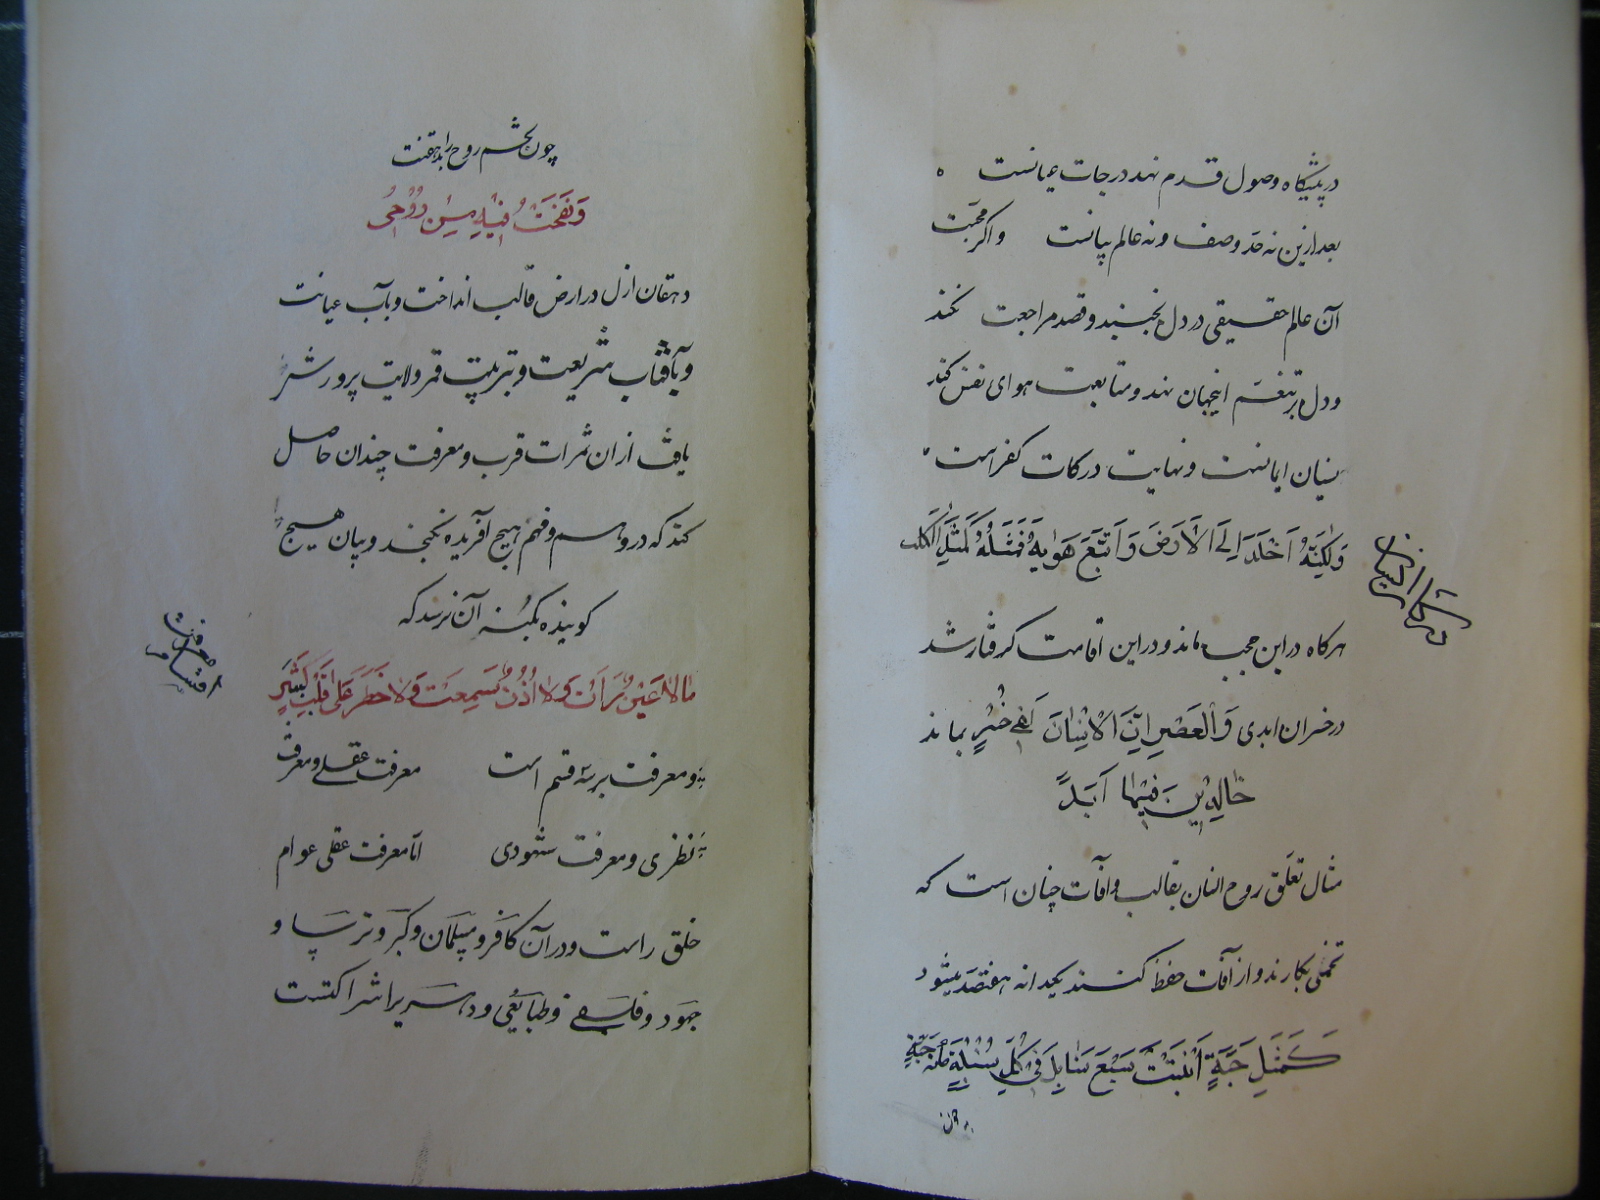 در پیشگاه وصول قدم نهد درجات عیانست
بعد ازین نه حد وصف و نه عالم بیانست و اگر محبت
آن عالم حقیقی در دل نجنبد و قصد مراجعت نکند
و دل بر تنعم اینجهان نهد و متابعت هوای نفس کند
نسیان ایمانست و نهایت درکات کفر است
وَلٰکِنَّهُ اَخْلَدَ اِلَی الْاَرْضِ وَاتَّبَعَ هَوٰیهُ فَمَثَلُهُ کَمَثَلِ الْکَلْبِ
هرگاه در این حجب ماند و در این اقامت گرفتار شد
در خسران ابدی وَالْعَصْرِ اِنَّ الْاِنْسٰانَ لَفی خُسْرٍ بماند
خٰالِدینَ فیهٰا اَبَداً
مثال تعلق روح انسان بقالب و آفات چنان است که
تخمی بکارند و از آفات حفظ کنند یکدانه هفتصد میشود
کَمَثَلِ حَبَّةٍ اَنْبَتَتْ سَبْعَ سَنٰابِلَ فی کُلِّ سُنْبُلَةٍ مائة حَبَّةٍ
درکات انسان
چون تخم روح را بدهقنت
وَنَفَخْتُ فیهِ مِنْ رُوحی
دهقان ازل در ارض قالب انداخت و بآب عیانت
و بآفتاب شریعت و تربیت قمر ولایت پرورش
یافت از ان ثمرات قرب و معرفت چندان حاصل
کند که در وهم و فهم هیچ آفریده نگنجد و بیان هیچ
گوینده بکنه آن نرسد که
مٰا لٰا عَیْنٌ رَأَتْ وَلٰا اُذُنٌ سَمِعَتْ وَلٰا خَطَرَ عَلٰی قَلْبِ بَشَرٍ
و معرفت بر سه قسم است معرفت عقلی و معرفت
نظری و معرفت شهودی اما معرفت عقلی عوام
خلق راست و در آن کافر و مسلمان و گبر و ترسا و
جهود و فلسفی و طبایعی و دهری را شراکتست
اقسام معرفت